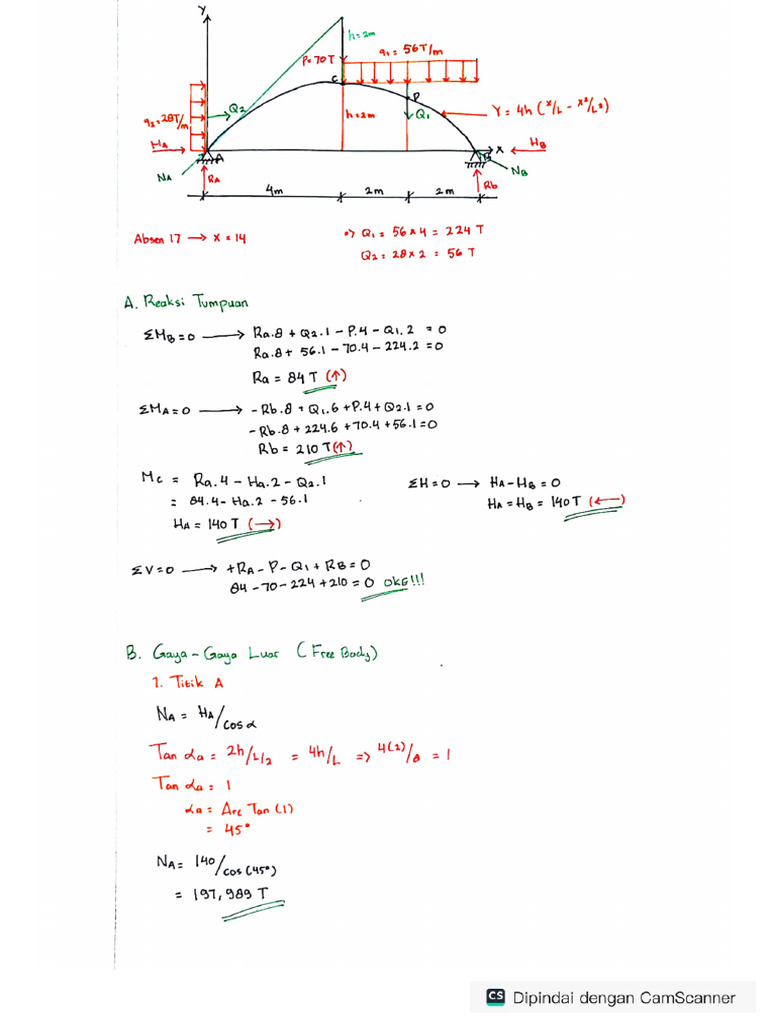 Y
h=2m
P=70T
q₁ = 56T/m
C
Q₂
P
Q₁
Y = 4h (x/L - x²/L²)
q₂=28T/m
h=2m
HA
A
B
X
HB
NA
RA
NB
Rb
4m
2m
2m
Absen 17 → X = 14
Q₁ = 56 x 4 = 224 T
Q₂ = 28 x 2 = 56 T
A. Reaksi Tumpuan
ΣMB=0 → Ra.8 + Q2.1 - P.4 - Q1.2 = 0
Ra.8 + 56.1 - 70.4 - 224.2 = 0
Ra = 84 T (↑)
ΣMA=0 → -Rb.8 + Q1.6 + P.4 + Q2.1 = 0
-Rb.8 + 224.6 + 70.4 + 56.1 = 0
Rb = 210 T (↑)
Mc = Ra.4 - Ha.2 - Q2.1
= 84.4 - Ha.2 - 56.1
HA = 140 T (→)
ΣH=0 → HA - HB = 0
HA = HB = 140 T (←)
ΣV=0 → +RA - P - Q1 + RB = 0
84 - 70 - 224 + 210 = 0 OKE!!!
B. Gaya - Gaya Luar (Free Body)
1. Titik A
NA = HA/cos α
Tan αa = 2h/L/2 = 4h/L => 4(2)/8 = 1
Tan αa = 1
αa = Arc Tan (1)
= 45°
NA = 140/cos(45°)
= 197,989 T
CS Dipindai dengan CamScanner